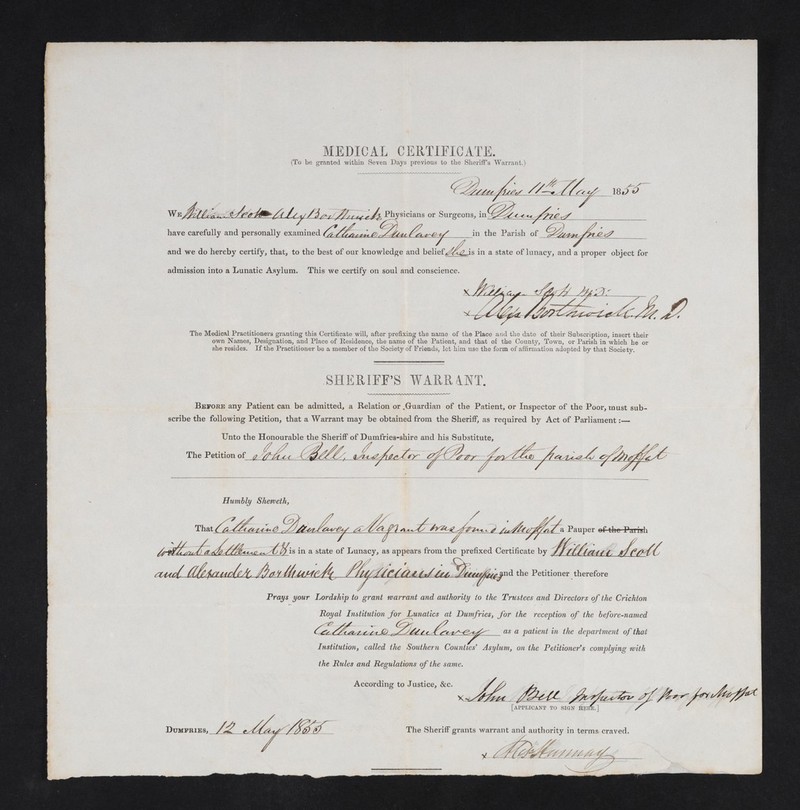 MEDICAL CERTIFICATE.
(To be granted within Seven Days previous to the Sheriff's Warrant.)
Dumfries 11th May 1855
WE William Scott Alex Borthwick Physicians or Surgeons, in Dumfries
have carefully and personally examined Catharine Dunlavey in the Parish of Dumfries
and we do hereby certify, that, to the best of our knowledge and belief she is in a state of lunacy, and a proper object for
admission into a Lunatic Asylum. This we certify on soul and conscience.
x William Scott M.D.
x Alex Borthwick M.D.
The Medical Practitioners granting this Certificate will, after prefixing the name of the Place and the date of their Subscription, insert their
own Names, Designation, and Place of Residence, the name of the Patient, and that of the County, Town, or Parish in which he or
she resides. If the Practitioner be a member of the Society of Friends, let him use the form of affirmation adopted by that Society.
SHERIFF'S WARRANT.
BEFORE any Patient can be admitted, a Relation or Guardian of the Patient, or Inspector of the Poor, must sub-
scribe the following Petition, that a Warrant may be obtained from the Sheriff, as required by Act of Parliament :—
Unto the Honourable the Sheriff of Dumfries-shire and his Substitute,
The Petition of John Bell, Inspector of Poor for the parish of Moffat
Humbly Sheweth,
That Catharine Dunlavey a Vagrant was found in Moffat a Pauper of the Parish
without a settlement & is in a state of Lunacy, as appears from the prefixed Certificate by William Scott
and Alexander Borthwick Physicians in Dumfries and the Petitioner therefore
Prays your Lordship to grant warrant and authority to the Trustees and Directors of the Crichton
Royal Institution for Lunatics at Dumfries, for the reception of the before-named
Catharine Dunlavey as a patient in the department of that
Institution, called the Southern Counties' Asylum, on the Petitioner's complying with
the Rules and Regulations of the same.
According to Justice, &c.
x John Bell Inspector of Poor for Moffat
[APPLICANT TO SIGN HERE.]
DUMFRIES, 12 May 1855 The Sheriff grants warrant and authority in terms craved.
x